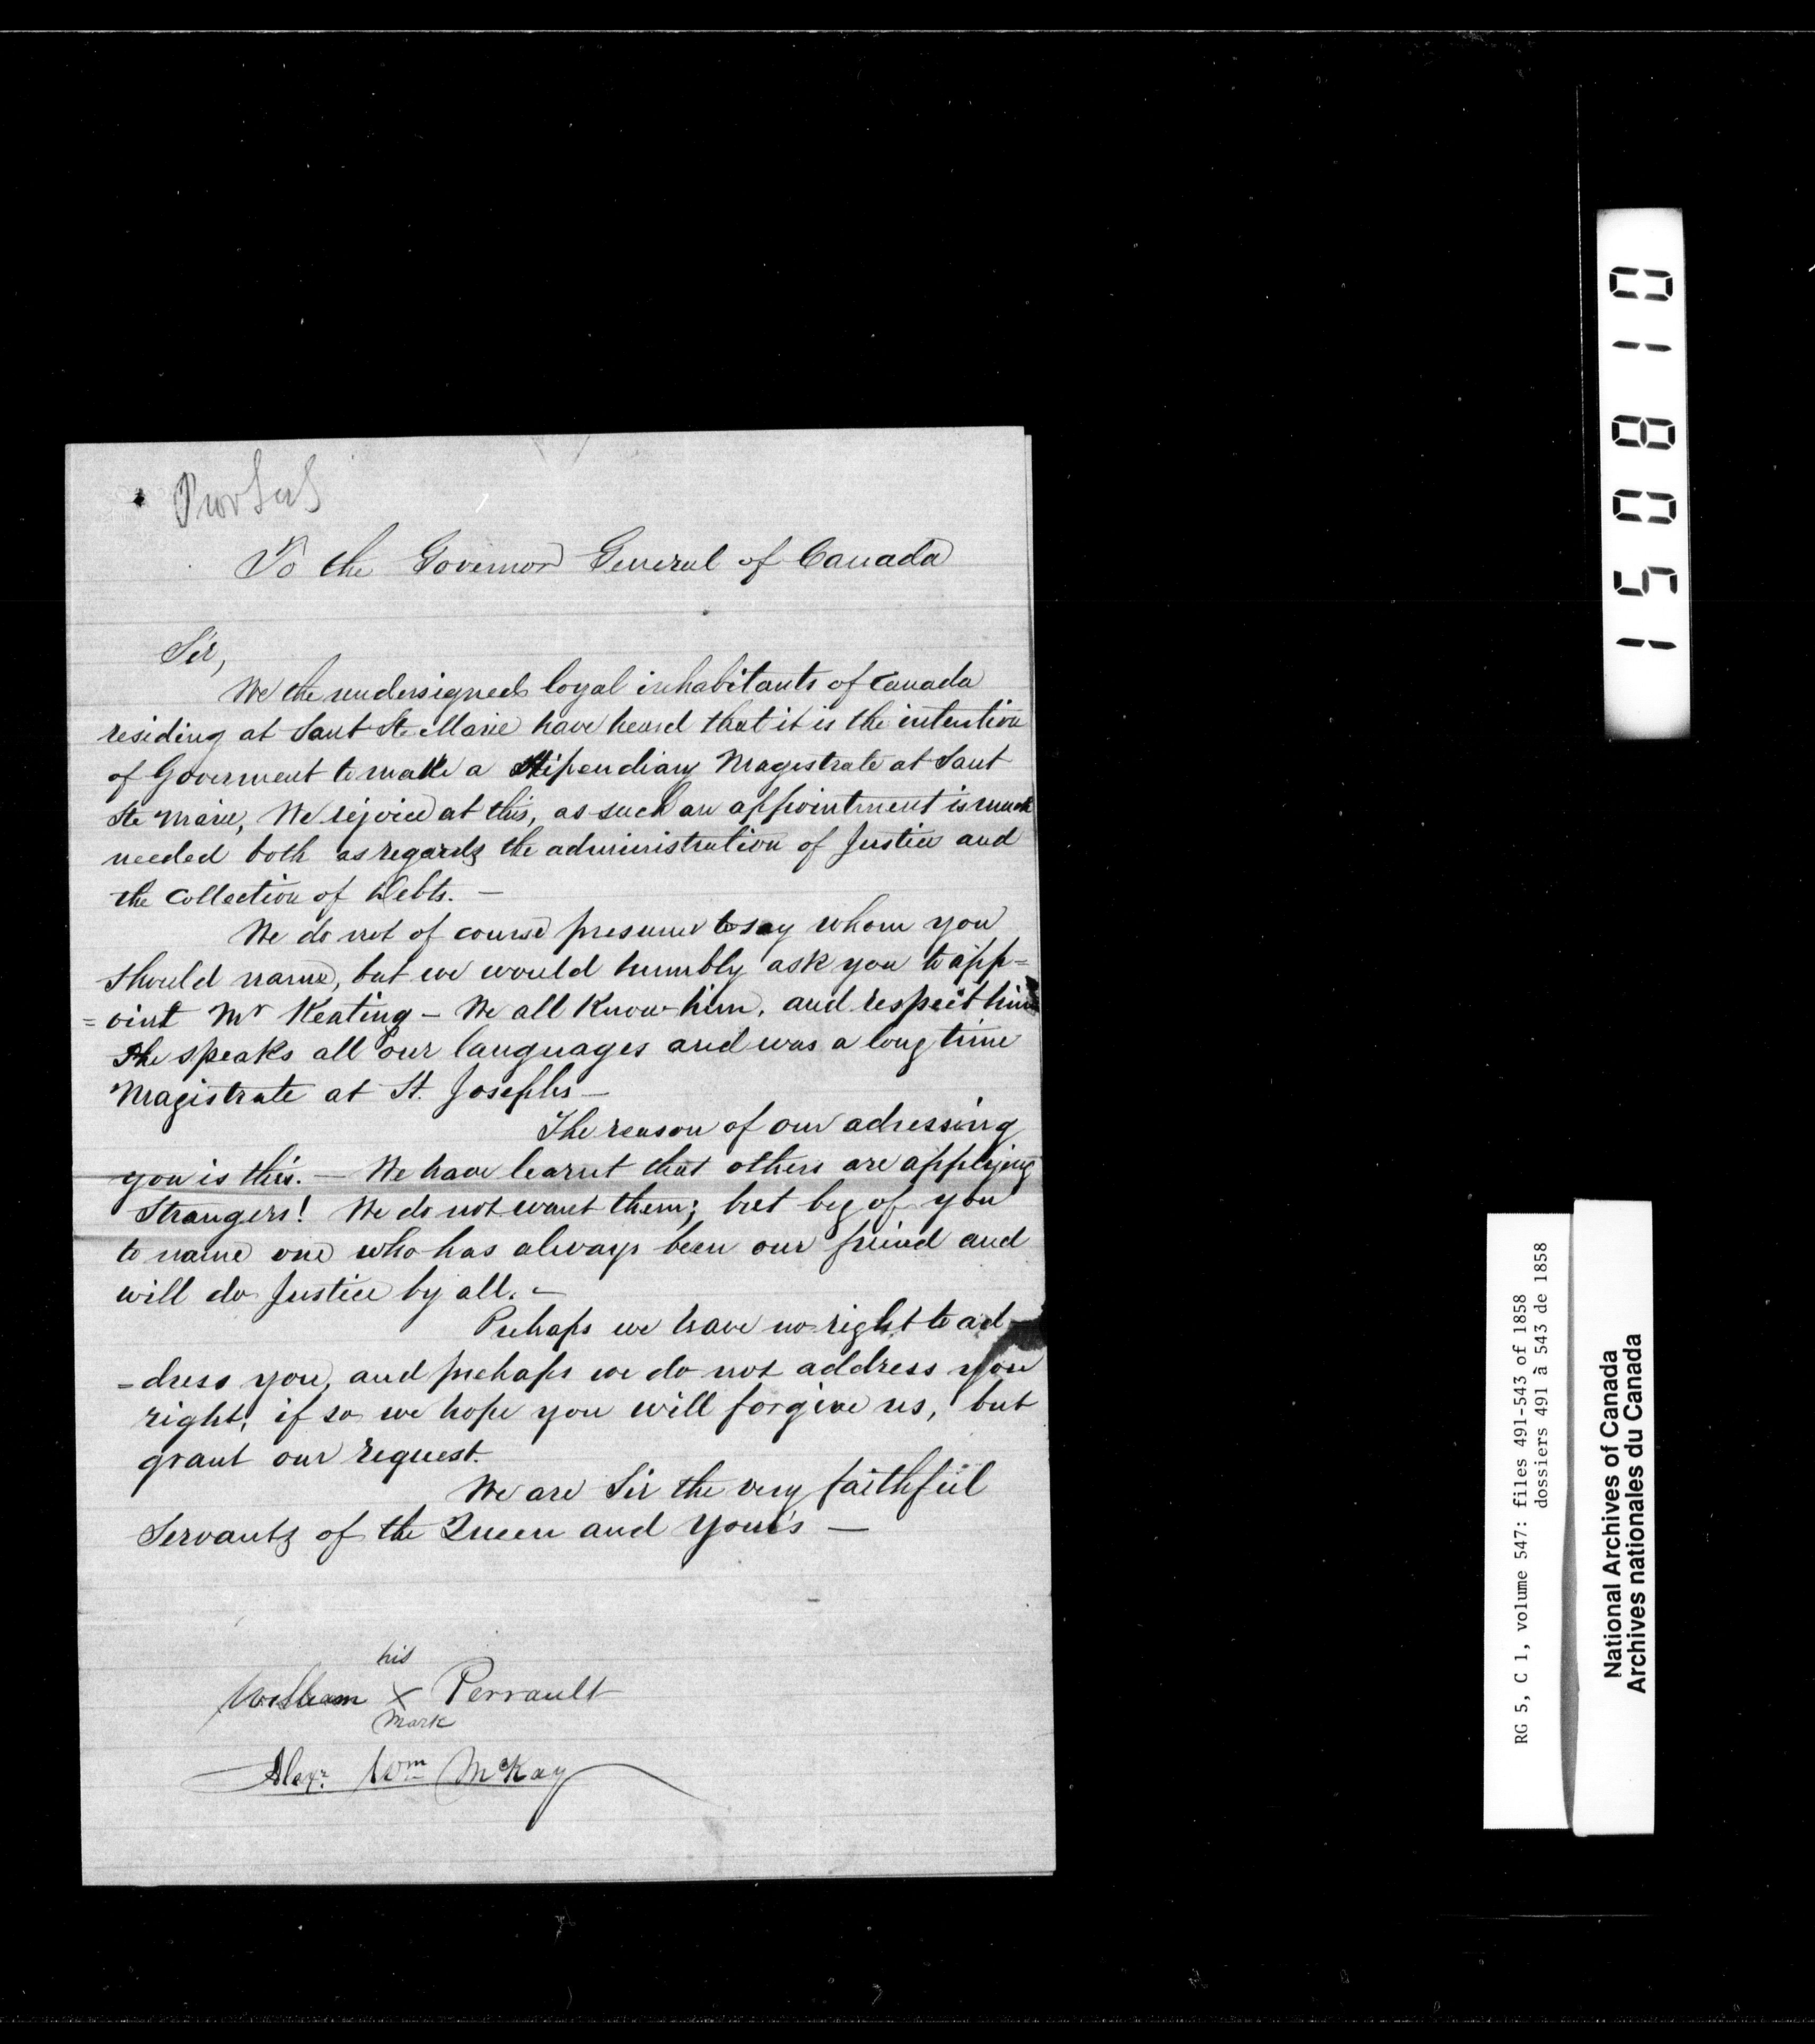 Prov Sec
To the Governor General of Canada
Sir,
We the undersigned loyal inhabitants of Canada
residing at Saut Ste Marie have heard that it is the intention
of Goverment to make a Stipendiary Magistrate at Saut
Ste Marie, We rejoice at this, as such an appointment is much
needed both as regards the administration of Justice and
the Collection of Debts. —
We do not of course presume to say whom you
should name, but we would humbly ask you to app=
=oint Mr Keating — We all Know him, and respect him
He speaks all our languages and was a long time
Magistrate at St. Josephs —
The reason of our adressing
you is this. — We have learnt that others are applying
Strangers! We do not want them; but beg of you
to name one who has always been our friend and
will do Justice by all. —
Perhaps we have no right to ad-
-dress you, and perhaps we do not address you
right, if so we hope you will forgive us, but
grant our request.
We are Sir the very faithful
Servants of the Queen and Your's —
his
William X Perrault
Mark
Alexr. Wm McKay
150810
RG 5, C 1, volume 547: files 491-543 of 1858
dossiers 491 à 543 de 1858
National Archives of Canada
Archives nationales du Canada